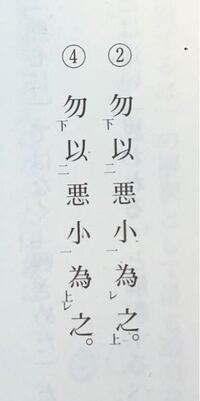 ② 勿下以二悪小一為レ之。上
④ 勿下以二悪小一為上レ之。